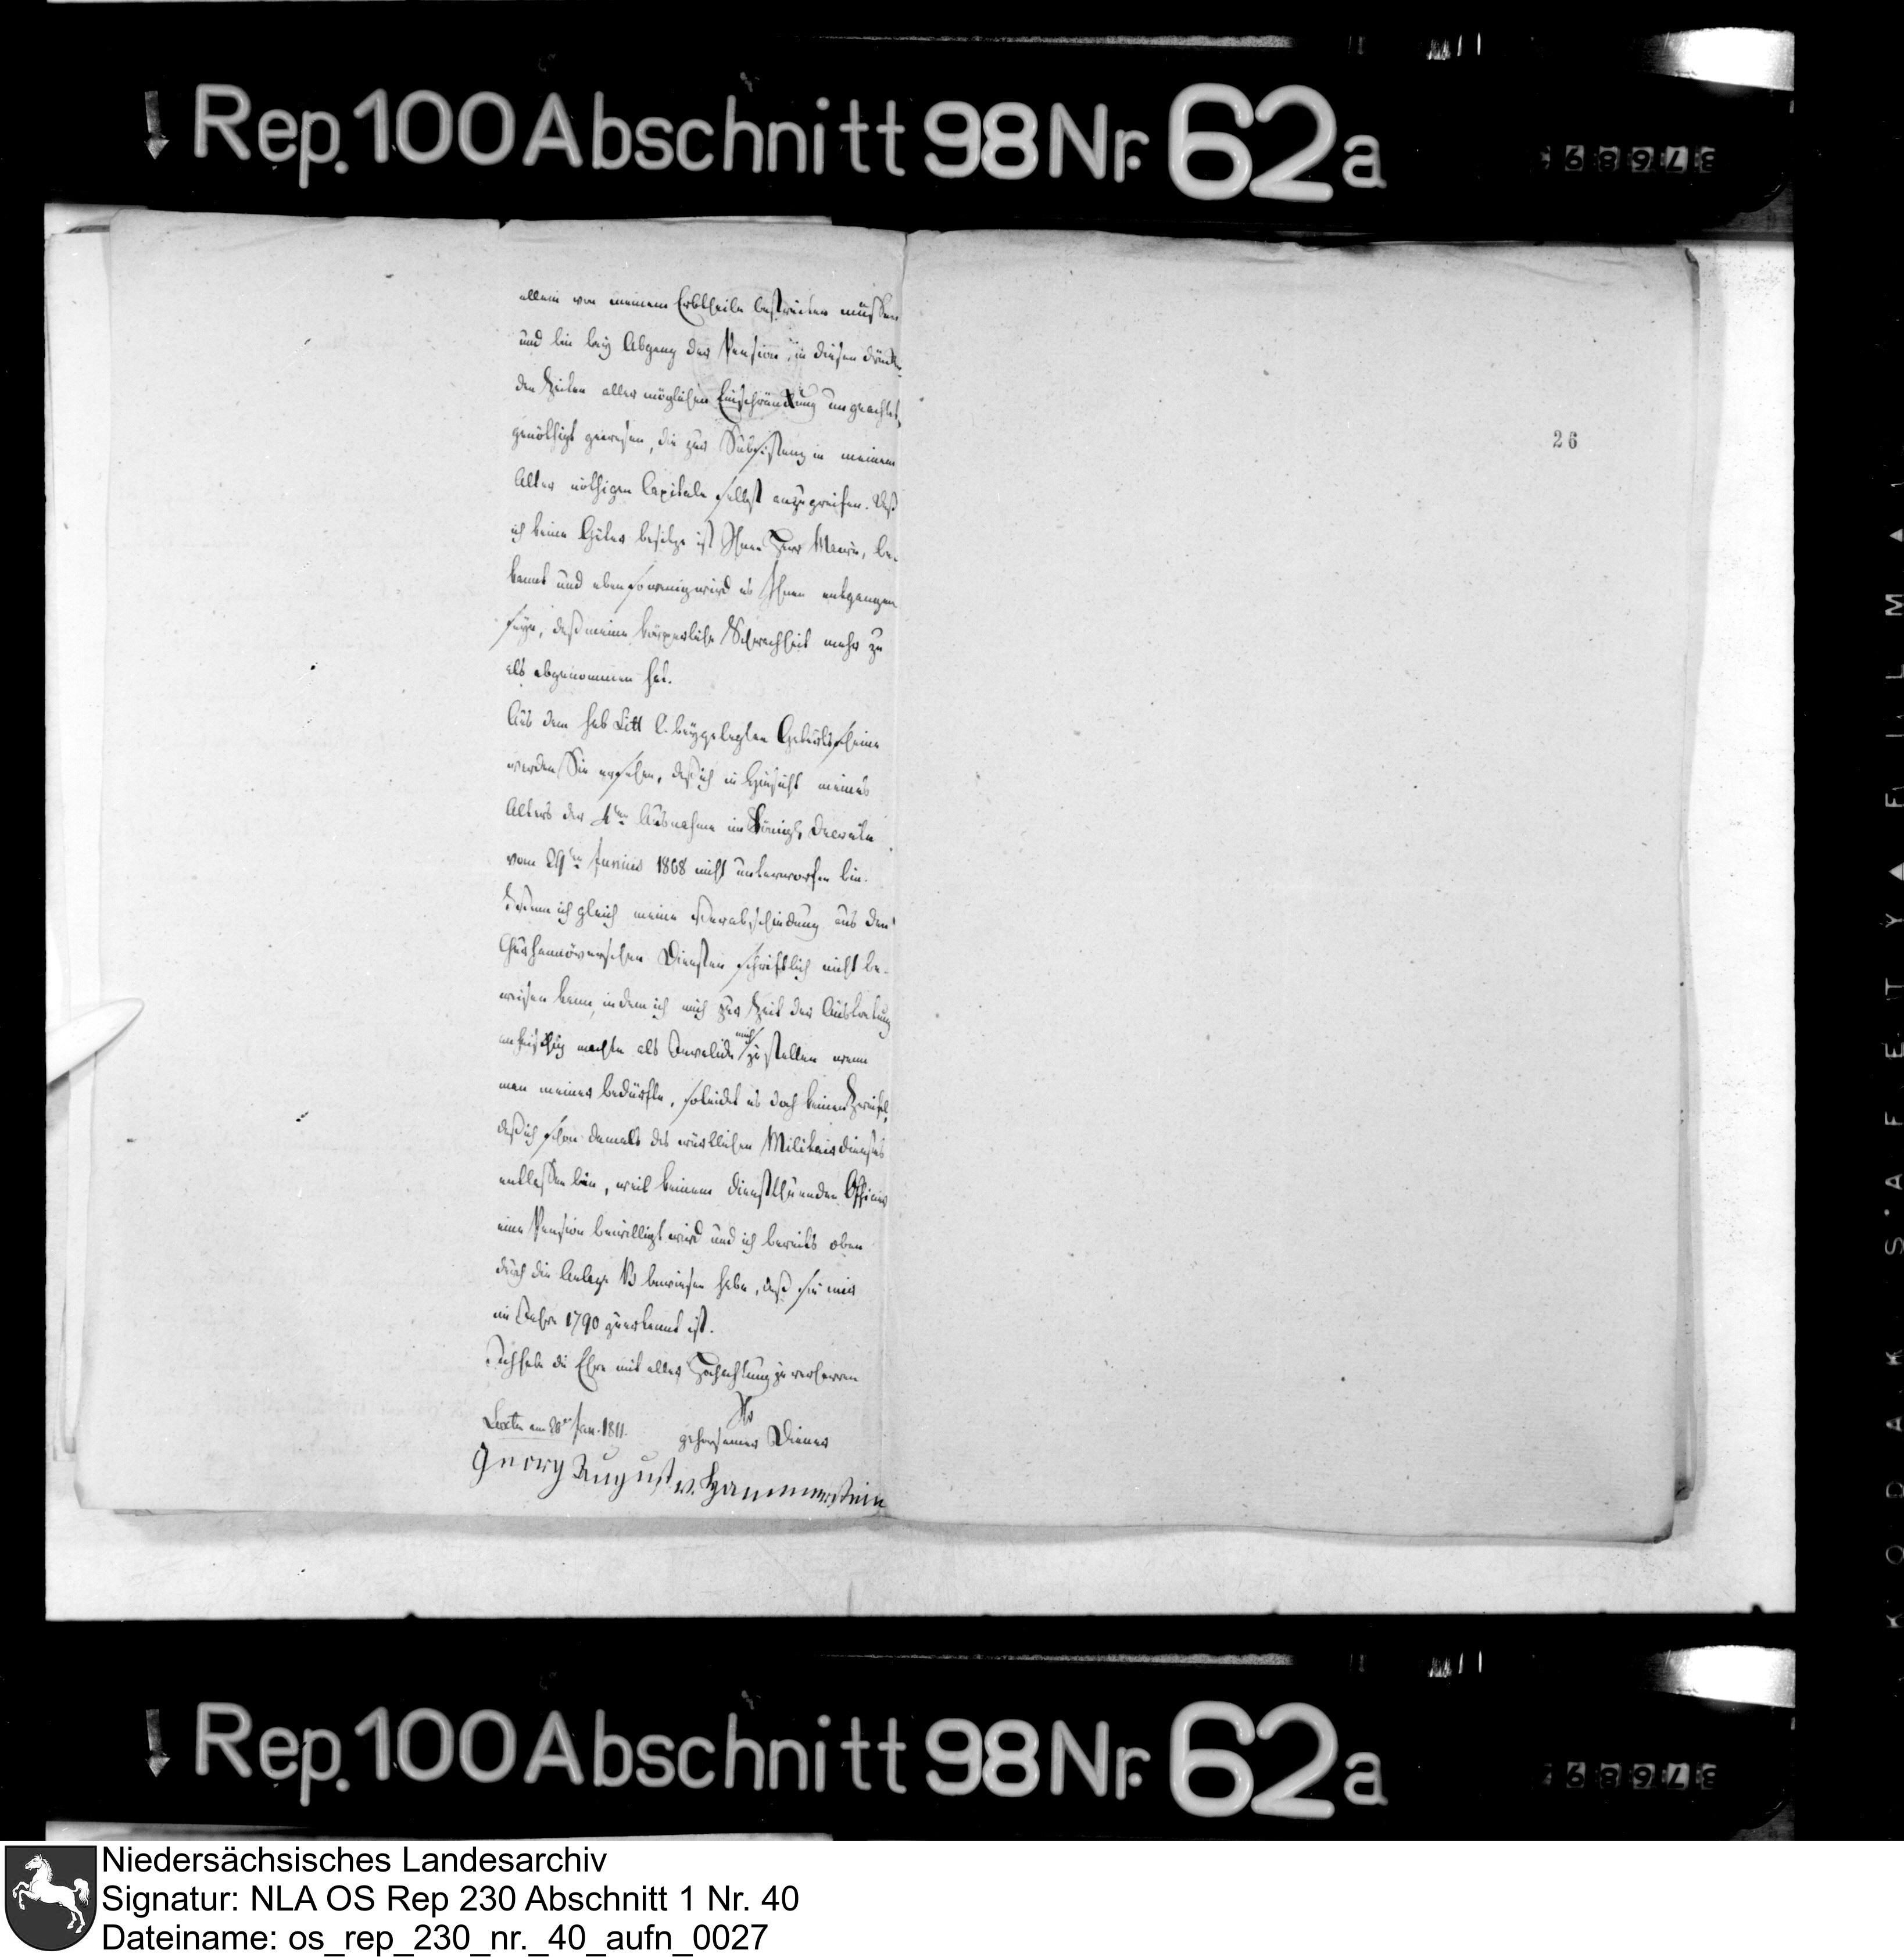 Rep. 100 Abschnitt 98 Nr. 62a
376893
allein von meinem Erbtheile bestreiten müssen
und bin bey Abgang der Pension in diesen drücken-
den Zeiten aller möglichen Einschränkung ungeachtet,
genöthigt gewesen, die zur Subsistenz in meinem
Alter nöthigen Capitale selbst anzugreifen. Daß
ich keine Güter besitze ist Ihnen Herr Maire, be-
kannt und eben so wenig wird es Ihnen entgangen
seyn, daß meine körperliche Schwachheit mehr zu
als abgenommen hat.
Aus dem sub Litt C. beygelegten Geburtsscheine
werden Sie ersehen, daß ich in Hinsicht meines
Alters der 4ten Ausnahme im Königl. Decrete
vom 29ten Junius 1808 nicht unterworfen bin.
ich gleich meine Verabschiedung aus den
Churhannöverschen Diensten schriftlich nicht be-
weisen kann, indem ich mich zur Zeit der Auflösung
anheischig machte als Invalide mich zu stellen wenn
man meiner bedürfte, so leidet es doch keinen Zweifel,
daß ich schon damals des würklichen Militairdienstes
entlassen bin, weil keinem dienstthuenden Officier
eine Pension bewilligt wird und ich bereits oben
durch die Anlage B bewiesen habe, daß sie mir
im Jahre 1790 zuerkannt ist.
Ich habe die Ehre mit aller Hochachtung zu verharren
Ihr
Loxten am 28ten Jan. 1811.
gehorsamer Diener
Georg August v. Hammerstein
26
KODAK S·A F E T Y ▲ F I L M ▲
Rep. 100 Abschnitt 98 Nr. 62a
376893
Niedersächsisches Landesarchiv
Signatur: NLA OS Rep 230 Abschnitt 1 Nr. 40
Dateiname: os_rep_230_nr._40_aufn_0027